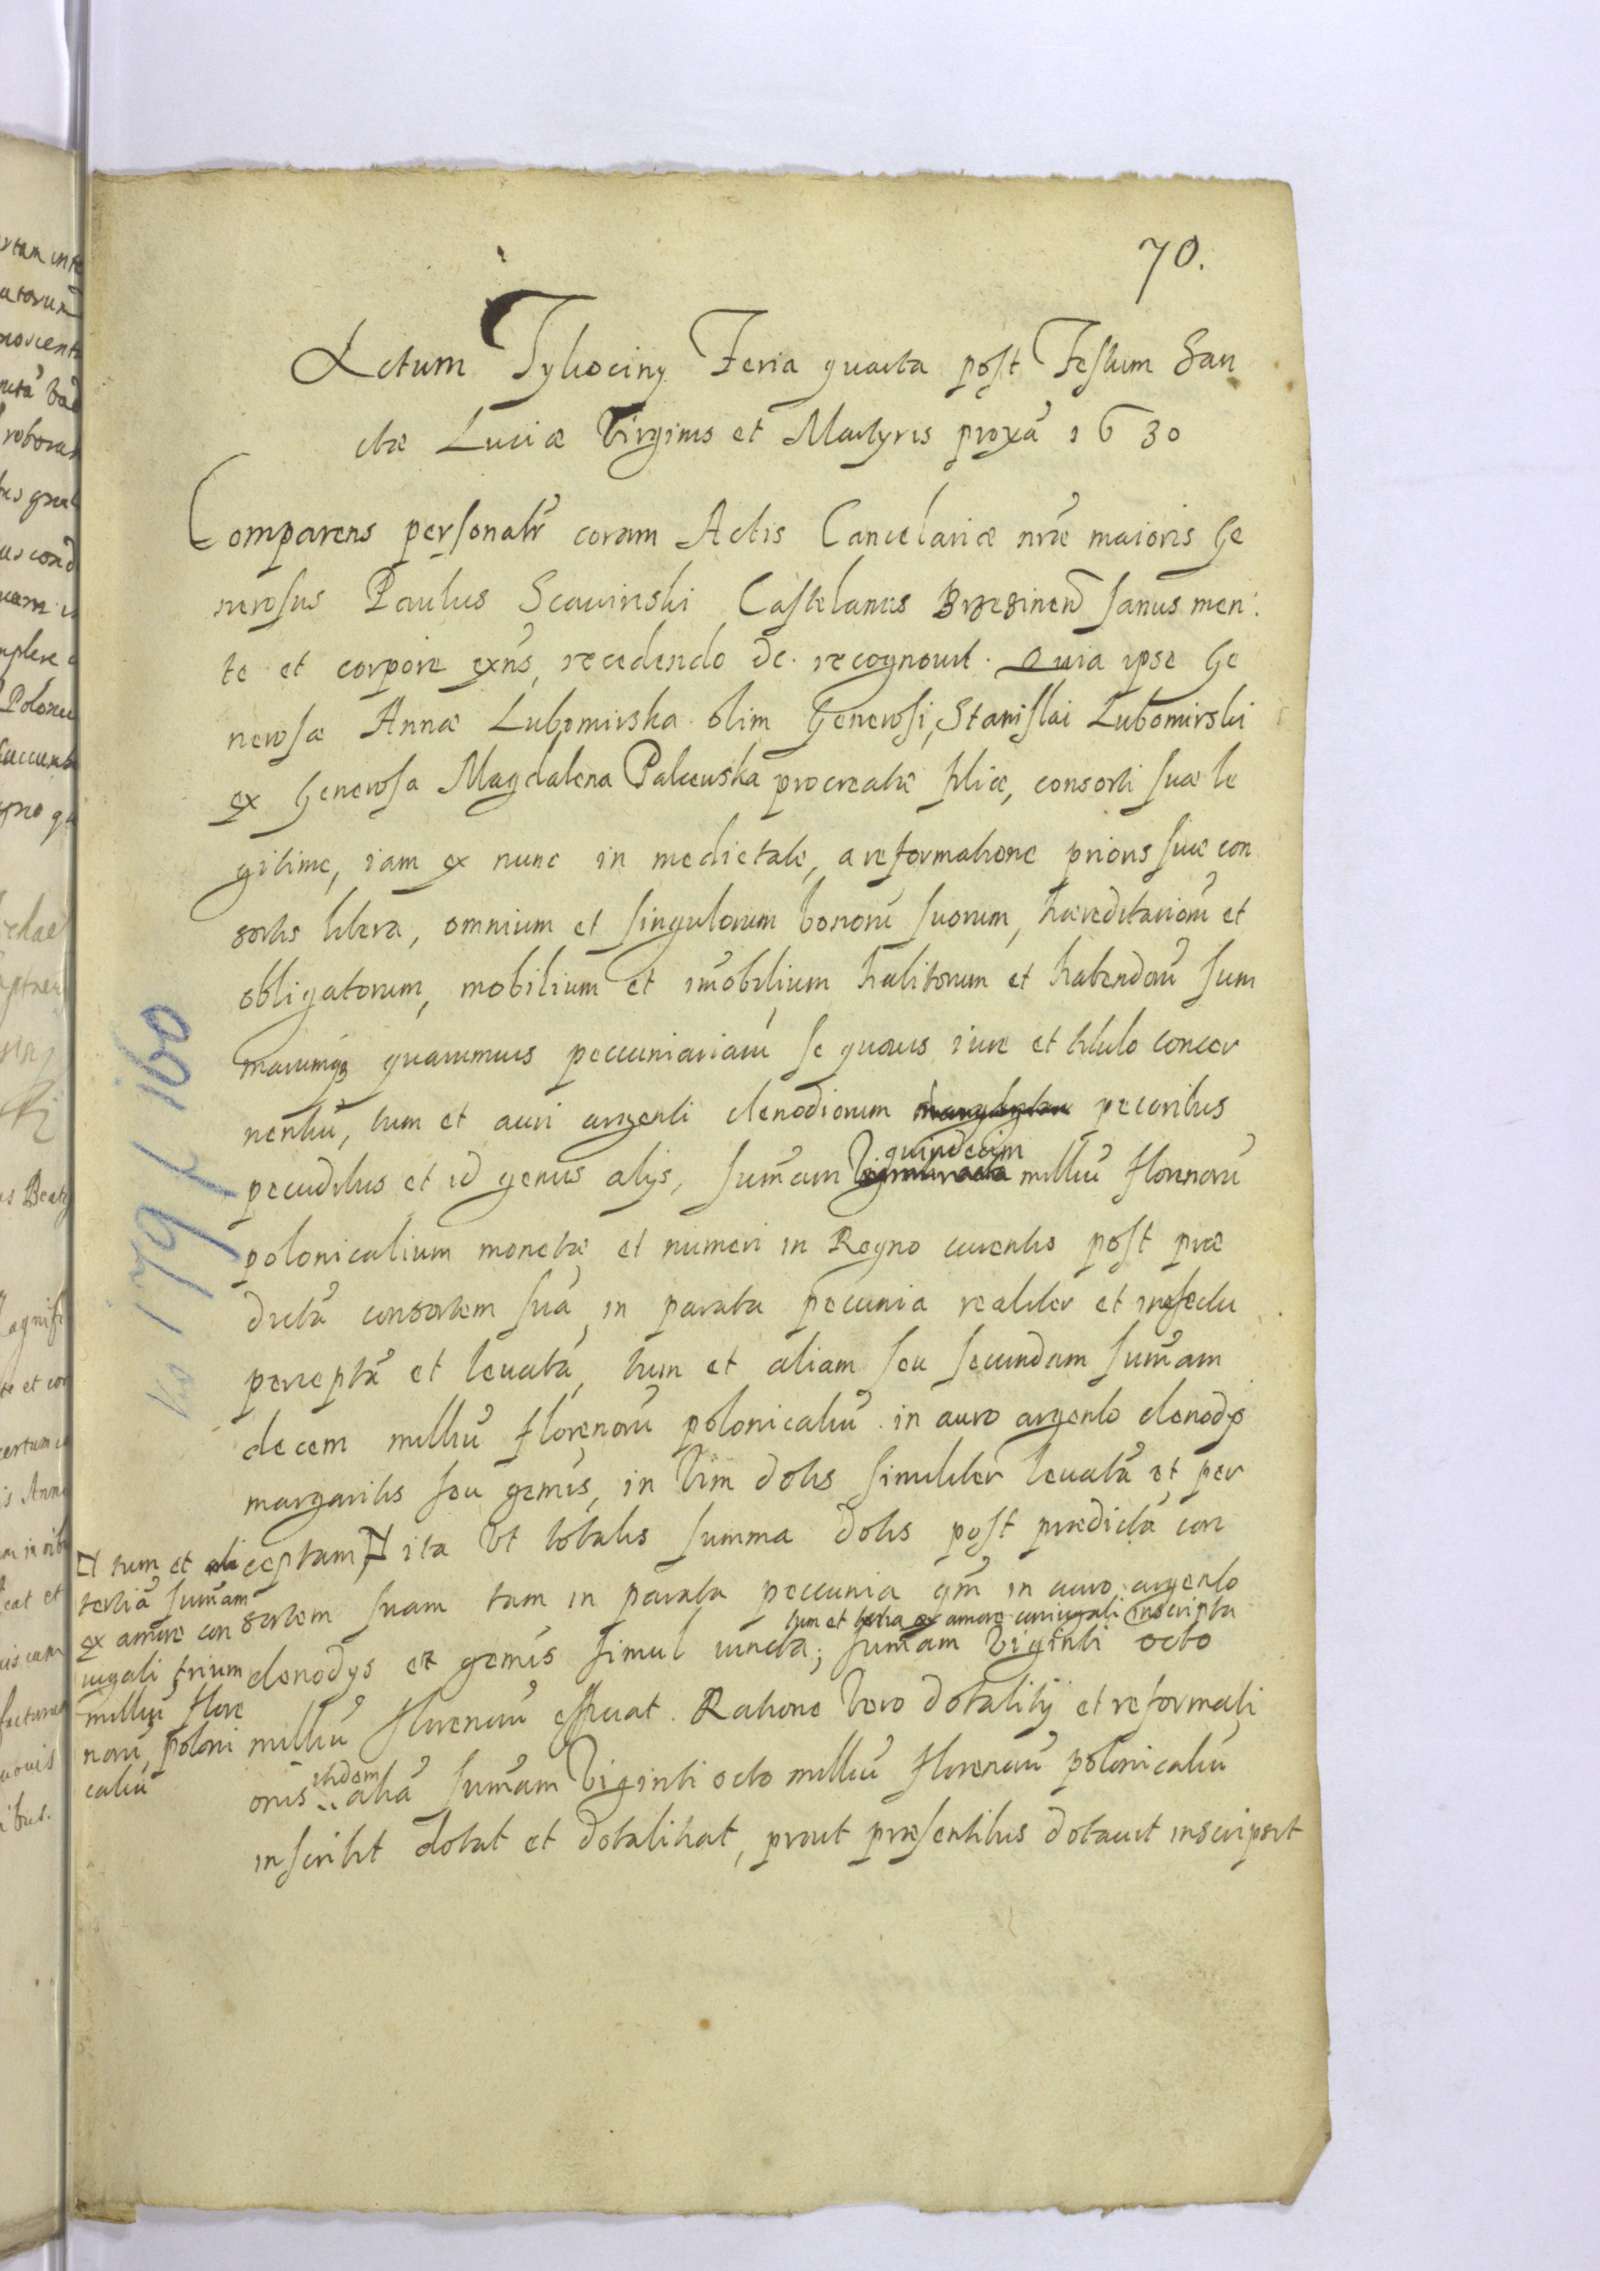 70.
Actum Tykociny Feria quarta post Festum San
ctæ Luciæ Virginis et Martyris proxã 1630
Comparens personalr̃ coram Actis Cancelariæ nr̃æ maioris Ge
nerosus Paulus Scawinski Castelanus Brzezinen̄ sanus men:
te et corpore exñs, recedendo de. recognouit. Quia ipse Ge
nerosæ Annæ Lubomirska olim Generosi, Stanislai Lubomirski
ex Generosa Magdalena Palczewska procreatæ filiæ, consorti suæ le
gitimæ, iam ex nunc in medietate, a reformatione prioris suæ con
sortis libera, omnium et singulorum bonorũ suorum, hæreditariorũ et
obligatorum, mobilium et im̃obilium habitorum et habendorũ sum
marumq₃ quarumuis peccuniariarũ se quouis iure et titulo concer
nentiũ, tum et auri argenti clenodiorum pecoribus
pecudibus et id genus alijs, sum̃am quindecim milliũ florenorũ
polonicalium monetæ et numeri in Regno currentis post præ
dictã consortem suã, in parata pecunia realiter et in effectu
perceptã et leuatã, tum et aliam seu secundam sum̃am
decem milliũ florenorũ polonicaliũ in auro argento clenodijs
margaritis seu gem̃is, in vim dotis similiter leuatã et per
ceptam, ita vt totalis summa dotis post prædictã con
sortem suam tam in parata peccunia qm̃ in auro argento
tum et tertia ex amore coniugali inscripta
clenodijs et gem̃is simul iuncta; sum̃am viginti octo
milliũ florenorũ efficiat. Ratione vero dotalitij et reformati
onis itidem aliã sum̃am viginti octo milliũ florenorũ polonicaliũ
inscribit dotat et dotalitat, prout præsentibus dotauit inscripsit
tum et ali
tertiã sum̃am
ex amore con
iugali trium
milliũ flore
norũ poloni
caliũ
179 k 160